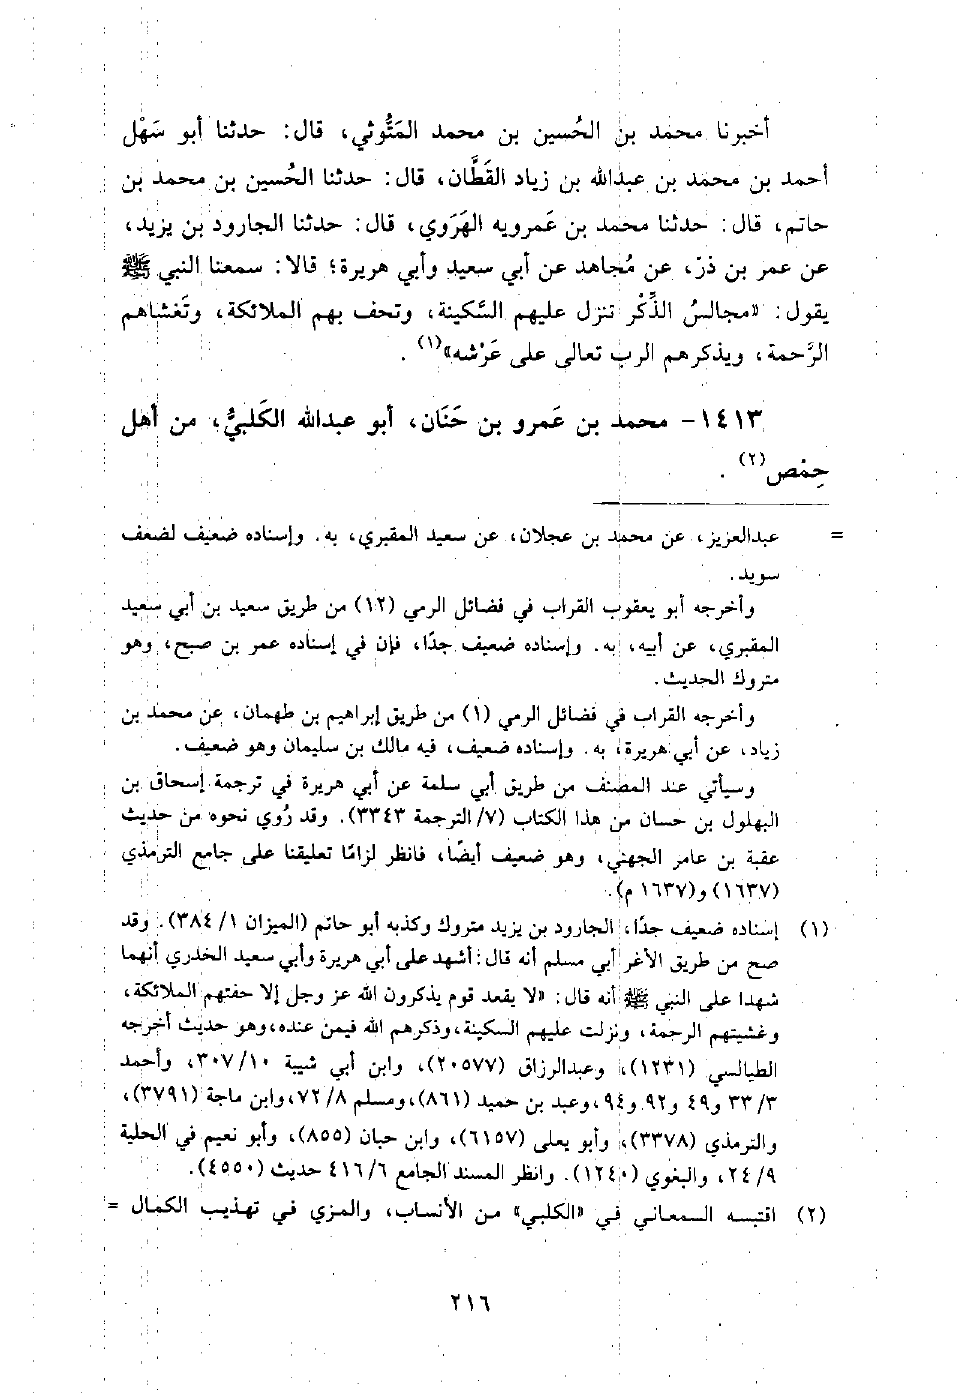 أخبرنا محمد بن الحُسين بن محمد المَتُّوثي، قال: حدثنا أبو سَهْل
أحمد بن محمد بن عبدالله بن زياد القَطَّان، قال: حدثنا الحُسين بن محمد بن
حاتم، قال: حدثنا محمد بن عَمرويه الهَرَوي، قال: حدثنا الجارود بن يزيد،
عن عمر بن ذرّ، عن مُجاهد عن أبي سعيد وأبي هريرة؛ قالا: سمعنا النبي ﷺ
يقول: «مجالسُ الذِّكْر تنزل عليهم السَّكينة، وتحف بهم الملائكة، وتَغشاهم
الرَّحمة، ويذكرهم الرب تعالى على عَرْشه»(١) .
١٤١٣- محمد بن عَمرو بن حَنَان، أبو عبدالله الكَلبيُّ، من أهل
حِمْص(٢) .
= عبدالعزيز، عن محمد بن عجلان، عن سعيد المقبري، به. وإسناده ضعيف لضعف
سويد.
وأخرجه أبو يعقوب القراب في فضائل الرمي (١٢) من طريق سعيد بن أبي سعيد
المقبري، عن أبيه، به. وإسناده ضعيف جدًا، فإن في إسناده عمر بن صبح، وهو
متروك الحديث.
وأخرجه القراب في فضائل الرمي (١) من طريق إبراهيم بن طهمان، عن محمد بن
زياد، عن أبي هريرة، به. وإسناده ضعيف، فيه مالك بن سليمان وهو ضعيف.
وسيأتي عند المصنف من طريق أبي سلمة عن أبي هريرة في ترجمة إسحاق بن
البهلول بن حسان من هذا الكتاب (٧/ الترجمة ٣٣٤٣). وقد رُوي نحوه من حديث
عقبة بن عامر الجهني، وهو ضعيف أيضًا، فانظر لزامًا تعليقنا على جامع الترمذي
(١٦٣٧) و(١٦٣٧ م).
(١) إسناده ضعيف جدًا، الجارود بن يزيد متروك وكذبه أبو حاتم (الميزان ١/ ٣٨٤). وقد
صح من طريق الأغر أبي مسلم أنه قال: أشهد على أبي هريرة وأبي سعيد الخدري أنهما
شهدا على النبي ﷺ أنه قال: «لا يقعد قوم يذكرون الله عز وجل إلا حفتهم الملائكة،
وغشيتهم الرحمة، ونزلت عليهم السكينة،وذكرهم الله فيمن عنده،وهو حديث أخرجه
الطيالسي (١٢٣١)، وعبدالرزاق (٢٠٥٧٧)، وابن أبي شيبة ١٠/ ٣٠٧، وأحمد
٣/ ٣٣ و٤٩ و٩٢ و٩٤، وعبد بن حميد (٨٦١)،ومسلم ٨/ ٧٢،وابن ماجة (٣٧٩١)،
والترمذي (٣٣٧٨)، وأبو يعلى (٦١٥٧)، وابن حبان (٨٥٥)، وأبو نعيم في الحلية
٩/ ٢٤، والبغوي (١٢٤٠). وانظر المسند الجامع ٦/ ٤١٦ حديث (٤٥٥٠).
(٢) اقتبسه السمعاني في «الكلبي» من الأنساب، والمزي في تهذيب الكمال =
٢١٦